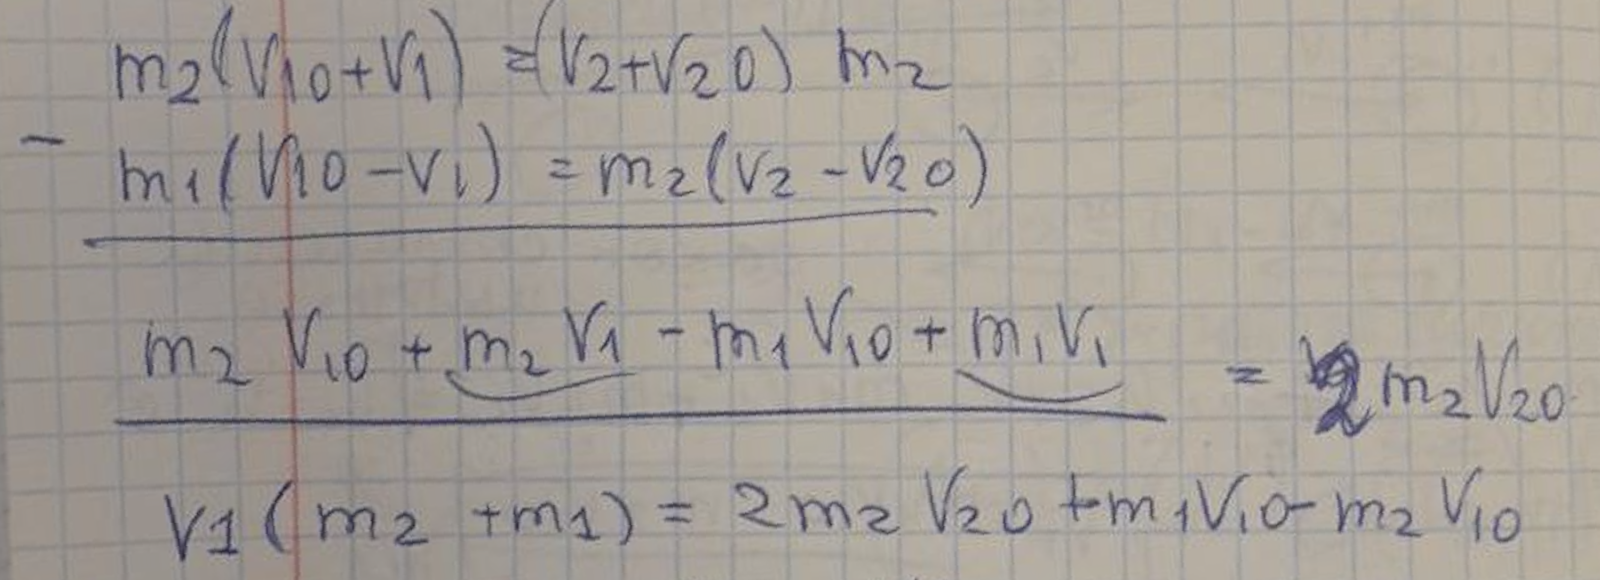 m2(V10+V1) =(V2+V20) m2
− m1(V10−V1) = m2(V2−V20)
m2 V10 + m2 V1 − m1 V10 + m1V1 = 2m2V20
V1(m2+m1) = 2m2 V20 + m1V10 − m2 V10